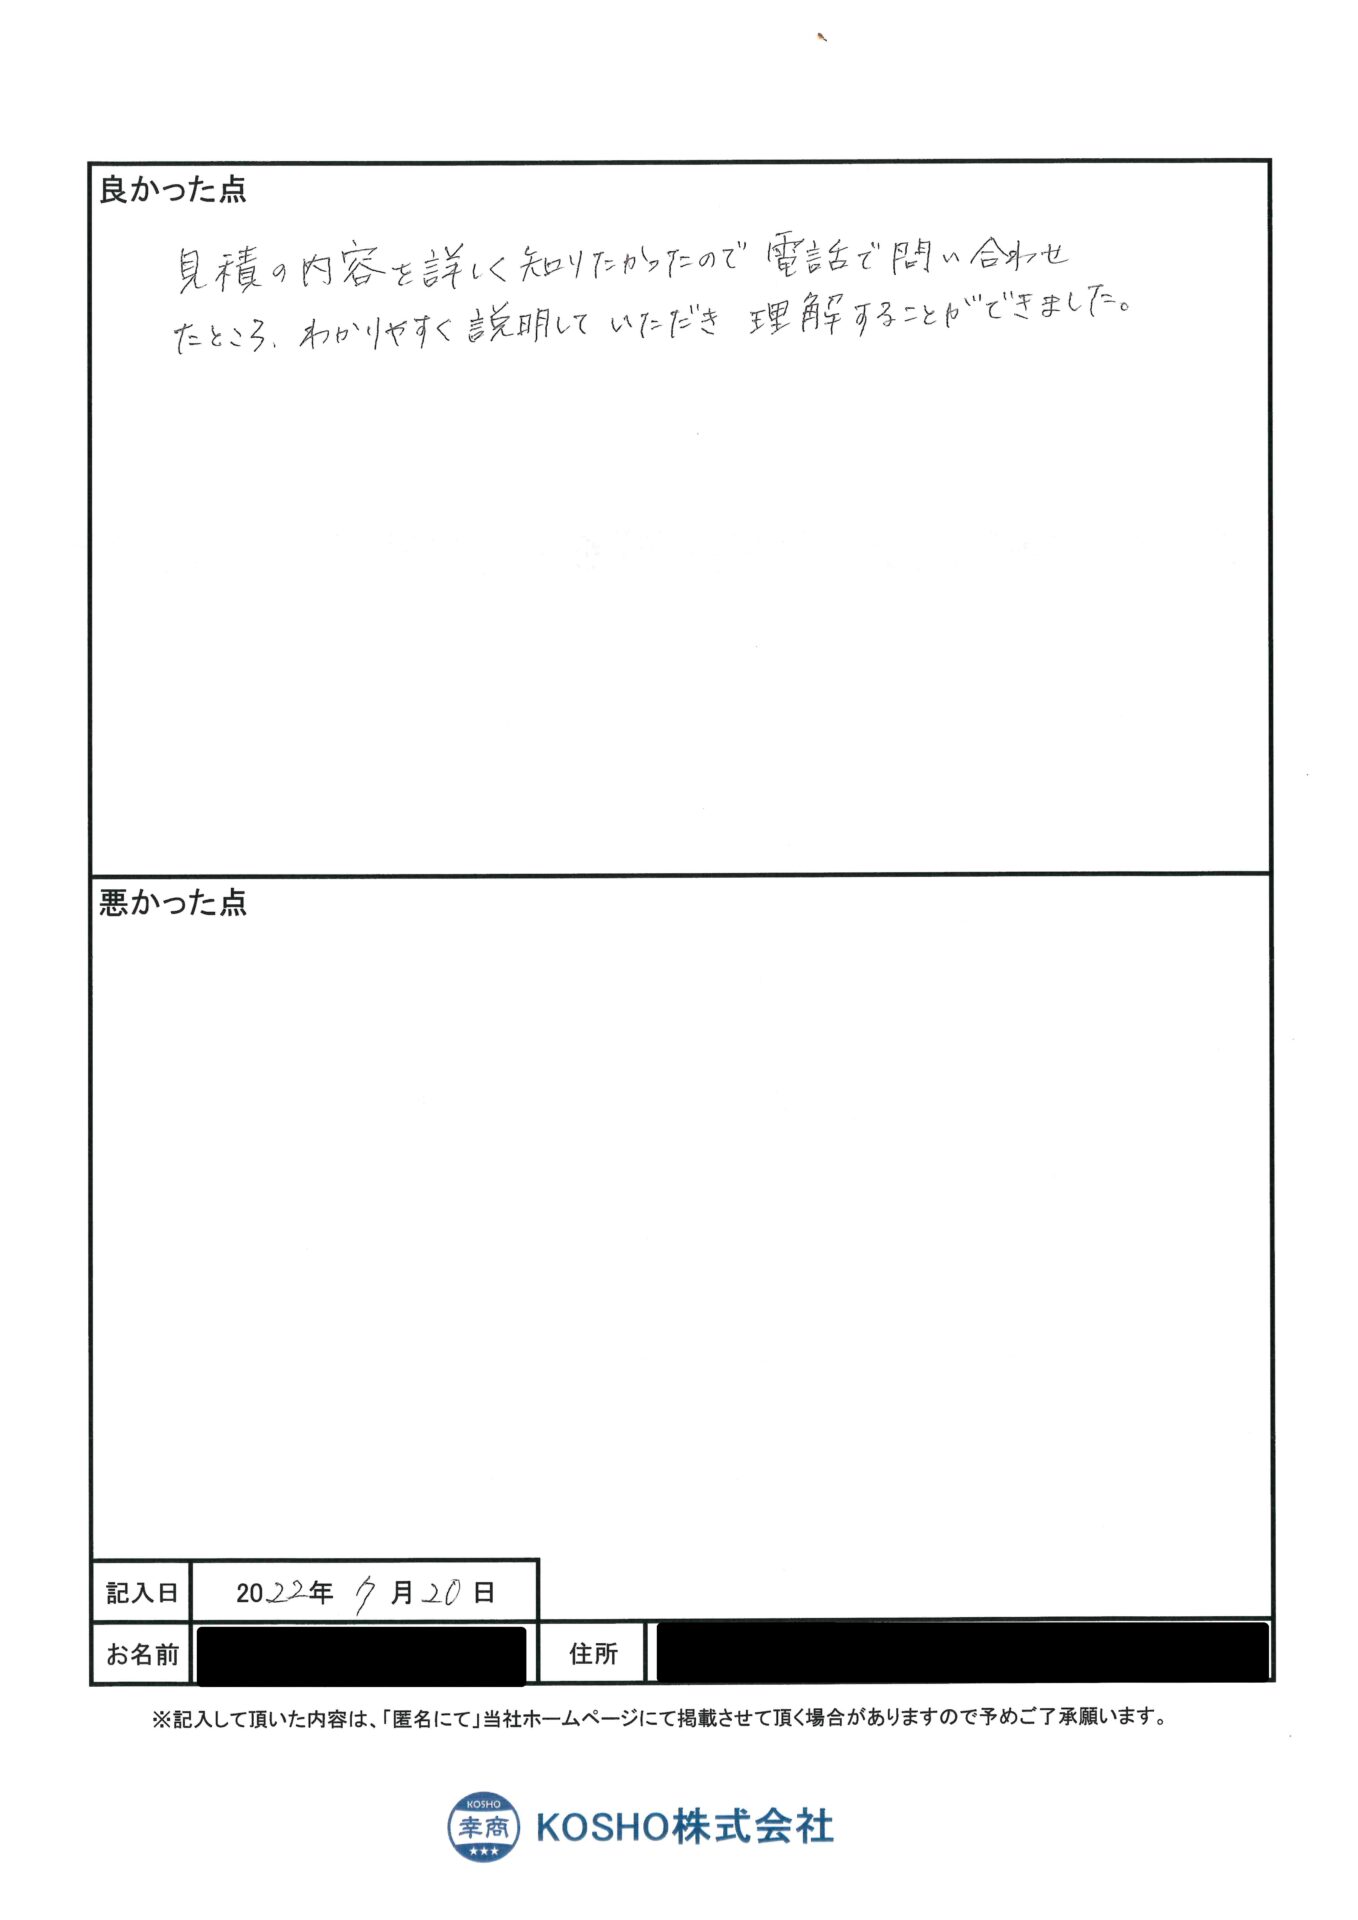 良かった点
見積の内容を詳しく知りたかったので電話で問い合わせ
たところ、わかりやすく説明していただき 理解することができました。
悪かった点
記入日 2022年 7月20日
お名前 住所
※記入して頂いた内容は、「匿名にて」当社ホームページにて掲載させて頂く場合がありますので予めご了承願います。
KOSHO
幸商
KOSHO株式会社